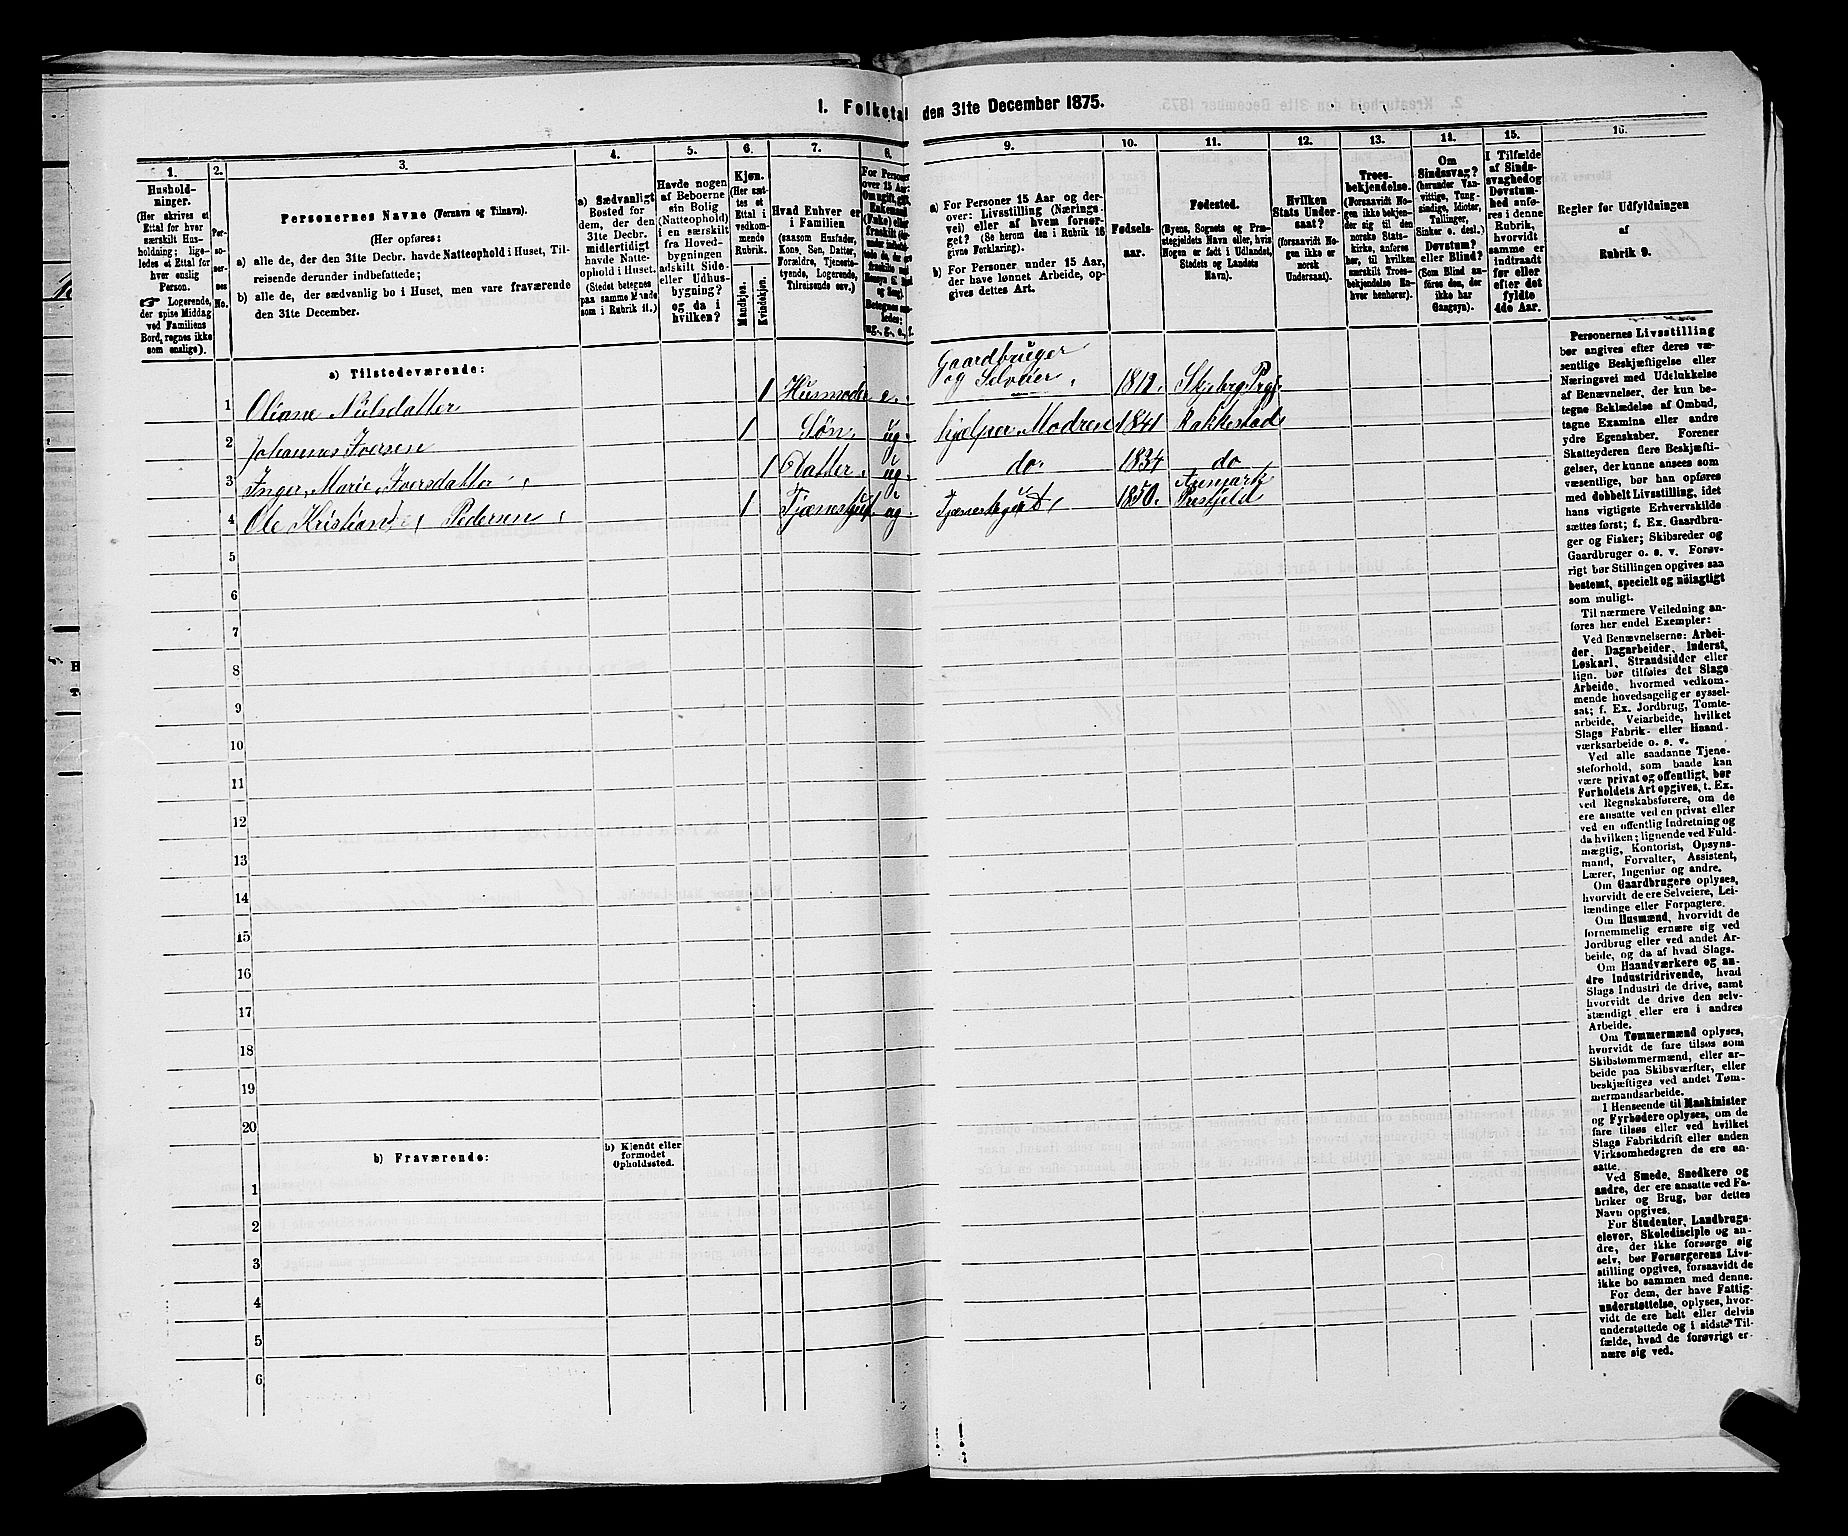 1. Folketal den 31te December 1875.
1.
Hushold-
ninger.
(Her skrives et
Ettal for hver
særskilt Hus-
holdning; lige-
ledes et Ettal for
hver enslig
Person.
Logerende,
der spise Middag
ved Familiens
Bord, regnes ikke
som enslige).
2.
Per-
so-
ner-
nes
No.
3.
Personernes Navne (Fornavn og Tilnavn).
(Her opføres:
a) alle de, der den 31te Decbr. havde Natteophold i Huset, Til-
reisende derunder indbefattede;
b) alle de, der sædvanlig bo i Huset, men vare fraværende
den 31te December.
4.
a) Sædvanligt
Bosted for
dem, der den
31te Decbr.
midlertidigt
havde Natte-
ophold i Huset.
(Stedet betegnes
paa samme Maade
som i Rubrik 11.)
5.
Havde nogen
af Beboerne
sin Bolig
(Natteophold)
i en særskilt
fra Hoved-
bygningen
adskilt Side-
eller Udhus-
bygning?
og da i
hvilken?
6.
Kjøn.
(Her sæt-
tes et
Ettal i
vedkom-
mende
Rubrik.
Mandkjøn.
Kvindekjøn.
7.
Hvad Enhver er
i Familien
(saasom Husfader,
Kone, Søn, Datter,
Forældre, Tjeneste-
tyende, Logerende,
Tilreisende osv.)
8.
For Personer
over 15 Aar:
9.
a) For Personer 15 Aar og der-
over: Livsstilling (Nærings-
vei) eller af hvem forsør-
get? (Se herom den i Rubrik 16
givne Forklaring).
b) For Personer under 15 Aar,
der have lønnet Arbeide, op-
gives dettes Art.
10.
Fødsels-
aar.
11.
Fødested.
(Byens, Sognets og Præ-
stegjeldets Navn eller, hvis
Nogen er født i Udlandet,
Stedets og Landets
Navn).
12.
Hvilken
Stats Under-
saat?
(forsaavidt No-
gen ikke er
norsk
Undersaat).
13.
Troes-
bekjendelse.
(Forsaavidt No-
gen ikke bekjen-
der sig til den
norske Stats-
kirke, anføres
her, til hvilken
særskilt Troes-
bekjendelse Ha-
hver henhører).
14.
Om
Sindssvag?
(herunder Van-
vittige, Tung-
sindige, Idioter,
Tullinger,
Sinker o. desl.)
Døvstum?
eller Blind?
(Som Blind an-
føres den, der
ikke har
Gangsyn).
15.
I Tilfælde
af Sinds-
svaghed og
Døvstum-
hed anfø-
res i denne
Rubrik,
hvorvidt
samme er
indtraadt
før eller
efter det
fyldte
4de Aar.
16.
Regler for Udfyldningen
af
Rubrik 9.
a) Tilstedeværende:
1 Oliane Nilsdatter 1 Husmoder e. Gaardbruger
og Selveier 1812. Skjeberg Prgj
2 Johannes Iversen 1 Søn ug. hjælper Modren 1841 Rakkestad
3 Inger Marie Iversdatter 1 Datter ug. do. 1834 do
4 Ole Kristian Pedersen 1 ug. 1850. Aremark
Prestjeld
5
6
7
8
9
10
11
12
13
14
15
16
17
18
19
20
b) Fraværende:
b) Kjendt eller
formodet
Opholdssted.
1
2
3
4
5
6
Personernes Livsstilling
bør angives efter deres væ-
sentlige Beskjæftigelse eller
Næringsvei med Udelukkelse
af Benævnelser, der kun be-
tegne Beklædelse af Ombud,
tagne Examina eller andre
ydre Egenskaber. Forener
Skatteyderen flere Beskjæfti-
gelser, der kunne ansees som
væsentlige, bør han opføres
med dobbelt Livsstilling, idet
hans vigtigste Erhvervskilde
sættes først; f. Ex. Gaardbru-
ger og Fisker; Skibsreder og
Gaardbruger o. s. v. Forøv-
rigt bør Stillingen opgives saa
bestemt, specielt og nøiagtigt
som muligt.
Til nærmere Veiledning an-
føres her endel Exempler:
Ved Benævnelserne: Arbei-
der, Dagarbeider, Inderst,
Løskarl, Strandsidder eller
lign. bør tilføies det Slags
Arbeide, hvormed vedkom-
mende hovedsagelig er syssel-
sat; f. Ex. Jordbrug, Tomte-
arbeide, Veiarbeide, hvilket
Slags Fabrik- eller Haand-
værksarbeide o. s. v.
Ved alle saadanne Tjene-
steforhold, som baade kan
være privat og offentligt, bør
Forholdets Art opgives, t. Ex.
ved Regnskabsførere, om de
ere ansatte ved en privat eller
ved en offentlig Indretning og
da hvilken; lignende ved Fuld-
mægtig, Kontorist, Opsyns-
mand, Forvalter, Assistent,
Lærer, Ingeniør og andre.
Om Gaardbrugere oplyses,
hvorvidt de ere Selveiere, Lei-
lændinge eller Forpagtere.
Om Husmænd, hvorvidt de
fornemmelig ernære sig ved
Jordbrug eller ved andet Ar-
beide, og da af hvad Slags.
Om Haandværkere og an-
dre Industridrivende, hvad
Slags Industri de drive, samt
hvorvidt de drive den selv-
stændigt eller ere i andres
Arbeide.
Om Tømmermænd oplyses,
hvorvidt de fare tilsøs som
Skibstømmermænd, eller ar-
beide paa Skibsværfter, eller
beskjæftiges ved andet Tøm-
mermandsarbeide.
I Henseende til Maskinister
og Fyrbødere oplyses, om de
fare tilsøs eller ved hvilket
Slags Fabrikdrift eller anden
Virksomhedsgren de ere an-
satte.
Ved Smede, Snedkere og
andre, der ere ansatte ved Fa-
briker og Brug, bør dettes
Navn opgives.
For Studenter, Landbrugs-
elever, Skoledisciple og an-
dre, der ikke forsørge sig
selv, bør Forsørgerens Livs-
stilling opgives, forsaavidt de
ikke bo sammen med denne.
For dem, der have Fattig-
understøttelse, oplyses, hvor-
vidt de ere helt eller delvis
understøttede og i sidste Til-
fælde, hvad de forøvrigt er-
nære sig ved.